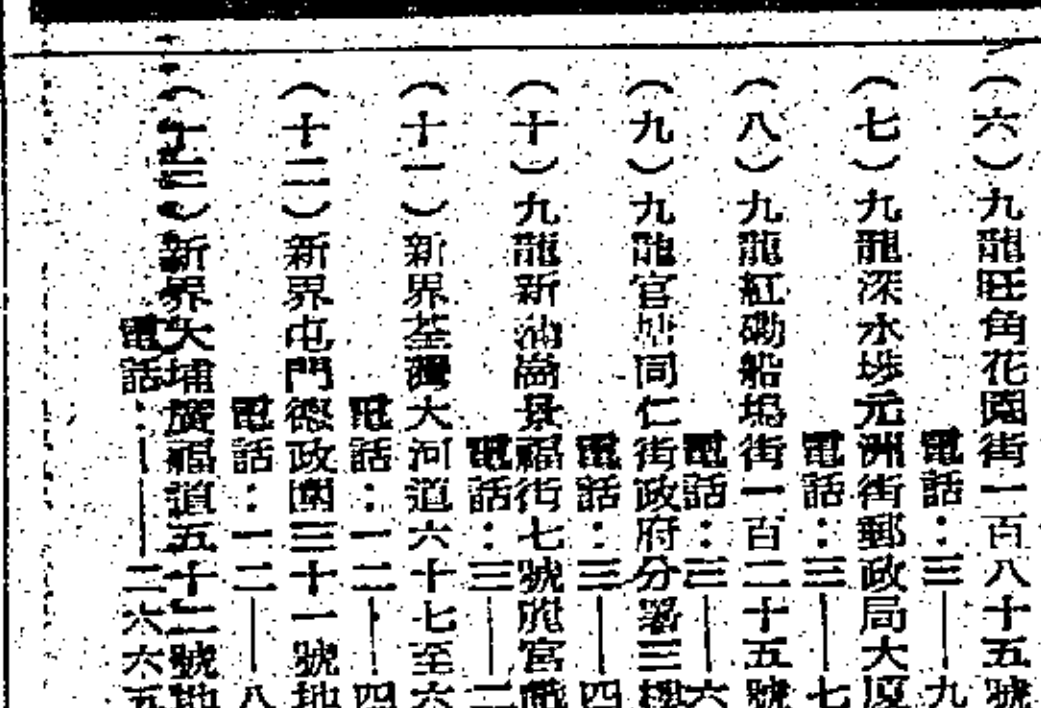 （六）九龍旺角花園街一百八十五號
電話：三——九
（七）九龍深水埗元洲街郵政局大厦
電話：三——七
（八）九龍紅磡船塢街一百二十五號
電話：三——六
（九）九龍官塘同仁街政府分署三樓
電話：三——四
（十）九龍新蒲崗景福街七號麗宮戲
電話：三——二
（十一）新界荃灣大河道六十七至六
電話：一二——四
（十二）新界屯門德政圍三十一號地
電話：一二——八
（十三）新界大埔廣福道五十二號地
電話：——二六六五